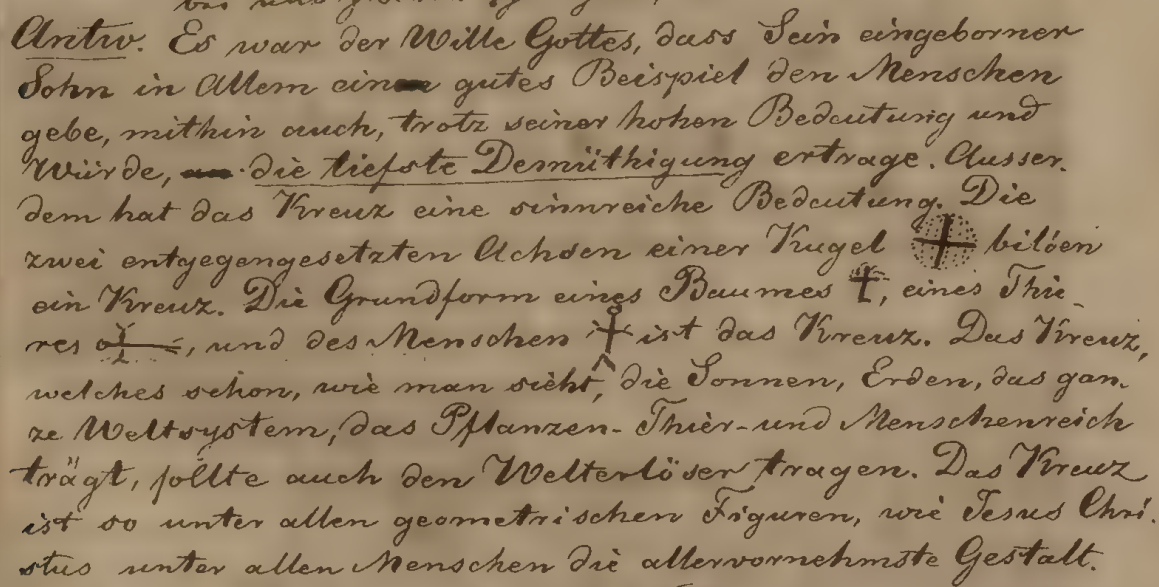 Antw. Es war der Wille Gottes, dass Sein eingeborner
Sohn in Allem ein gutes Beispiel den Menschen
gebe, mithin auch, trotz seiner hohen Bedeutung und
Würde, die tiefste Demüthigung ertrage. Ausser-
dem hat das Kreuz eine sinnreiche Bedeutung. Die
zwei entgegengesetzten Achsen einer Kugel bilden
ein Kreuz. Die Grundform eines Baumes, eines Thie-
res, und des Menschen ist das Kreuz. Das Kreuz,
welches schon, wie man sieht, die Sonnen, Erden, das gan-
ze Weltsystem, das Pflanzen- Thier- und Menschenreich
trägt, sollte auch den Welterlöser tragen. Das Kreuz
ist so unter allen geometrischen Figuren, wie Jesus Chri-
stus unter allen Menschen die allervornehmste Gestalt.